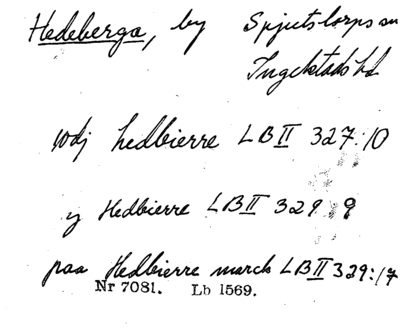 Hedeberga, by Spjutstorps sn
Ingelstads hd
wdj hedbierre LB II 327:10
y Hedbierre LB II 329:9
paa Hedbierre march LB II 329:17
Nr 7081. Lb 1569.